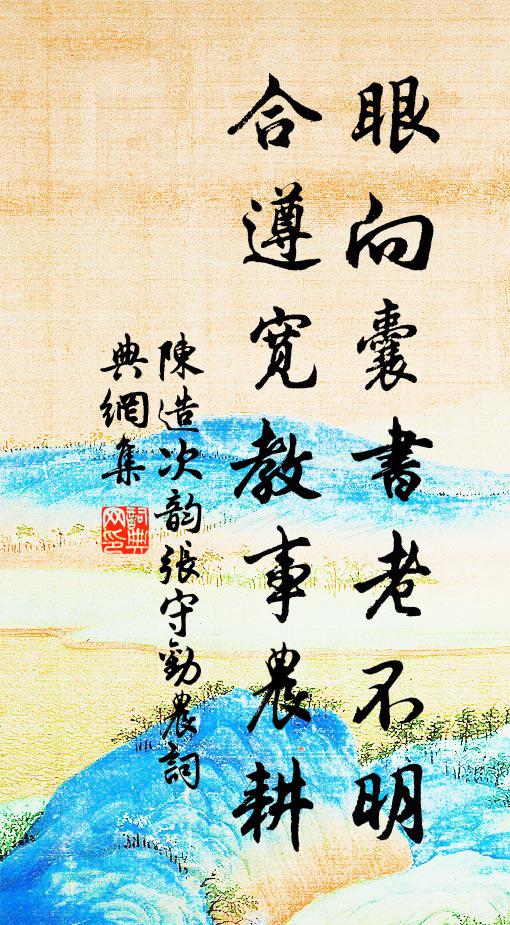 眼向囊書老不明
合遵寬教事農耕
陳造次韵張守勸農詞
典網集
詞典
网印